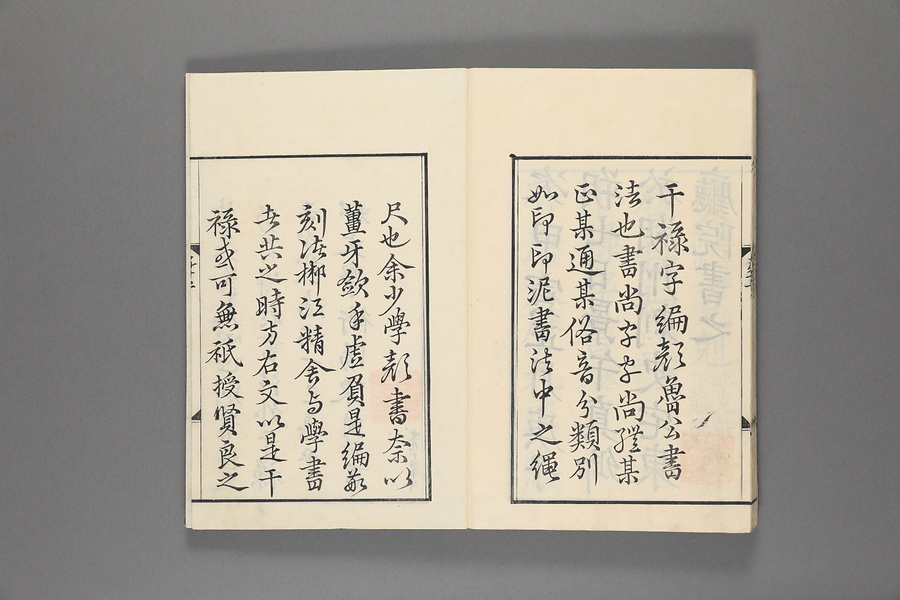 干祿字編顏魯公書
法也書尚字字尚體某
正某通某俗音分類別
如印印泥書法中之繩
尺也余少學顏書奈以
薑牙斂手虛負是編茲
刻法梆江精舍与學書
者共之時方右文以是干
祿或可無祇授賢良之